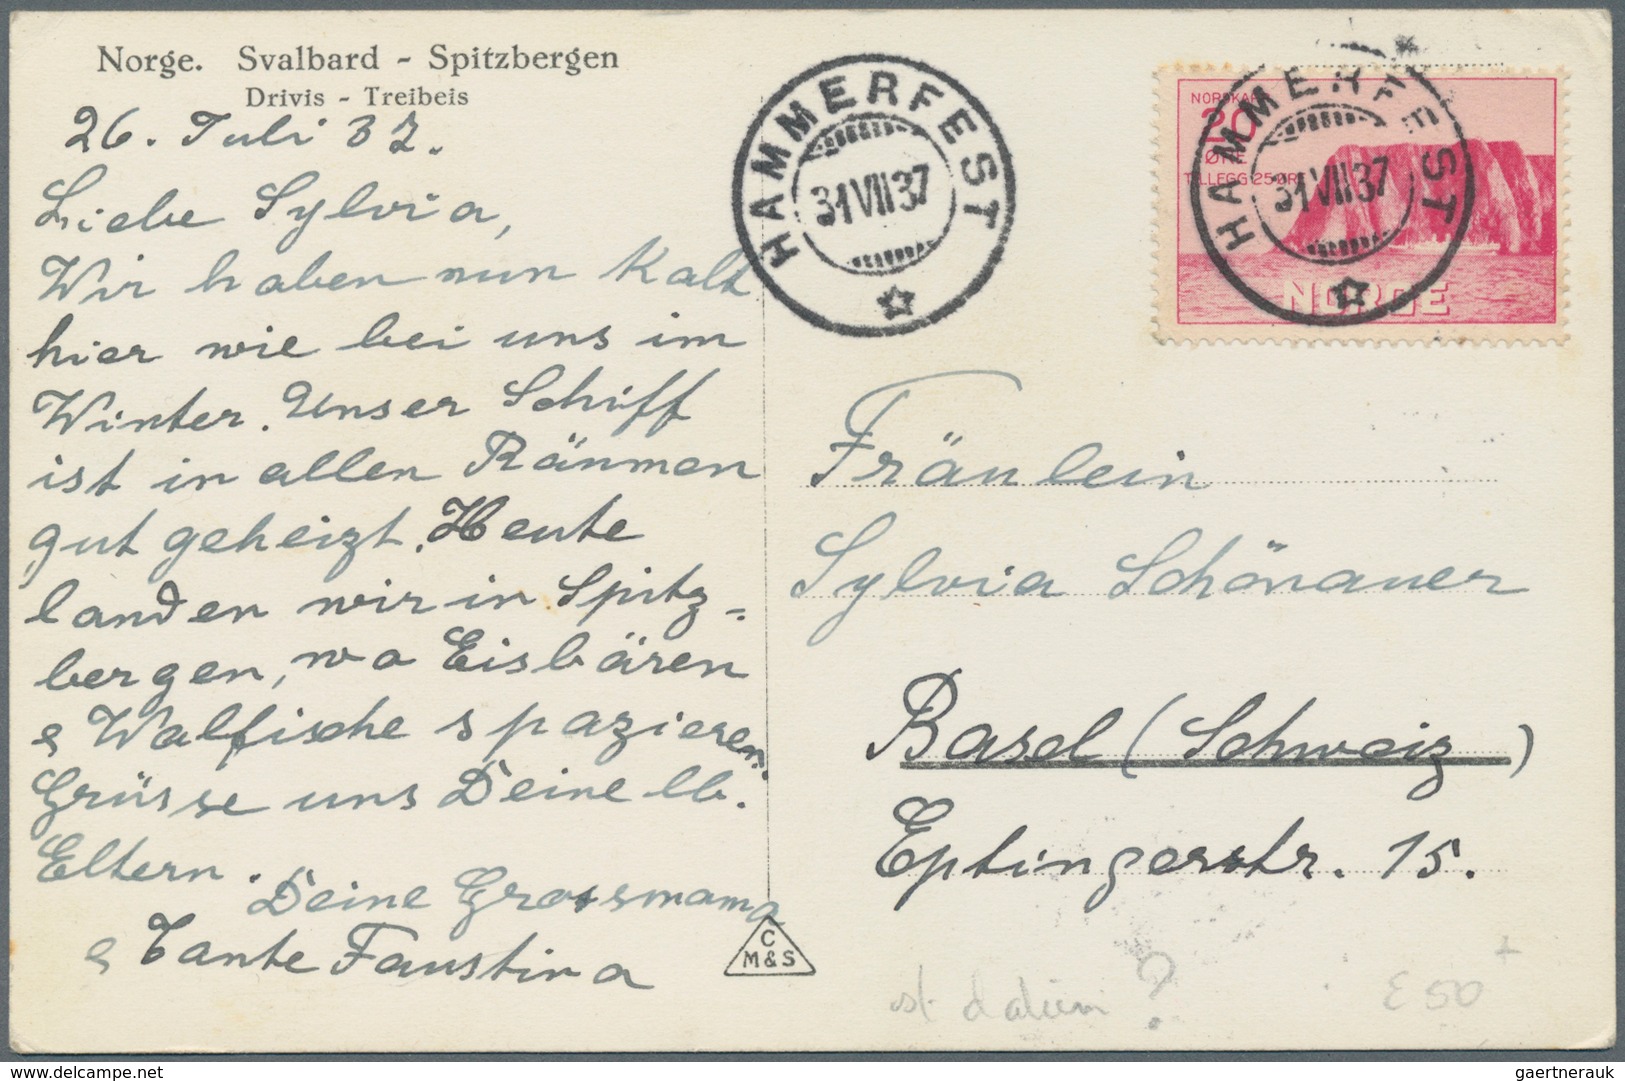 Norge. Svalbard - Spitzbergen
Drivis - Treibeis
26. Juli 37.
Liebe Sylvia,
Wir haben nun Kalt
hier wie bei uns im
Winter. Unser Schiff
ist in allen Räumen
gut geheizt. Heute
landen wir in Spitz=
bergen, wo Eisbären
& Walfische spazieren.
Grüsse uns Deine lb.
Eltern.
Deine Grossmama
& Tante Faustina
C
M&S
HAMMERFEST
31 VII 37
NORDKAPP
20
ØRE
TILLEGG 25 ØRE
NORGE
HAMMERFEST
31 VII 37
Fräulein
Sylvia Schönauer
Basel (Schweiz)
Eptingerstr. 15.
?
£ 50
http://www.delcampe.net
gaertnerauk